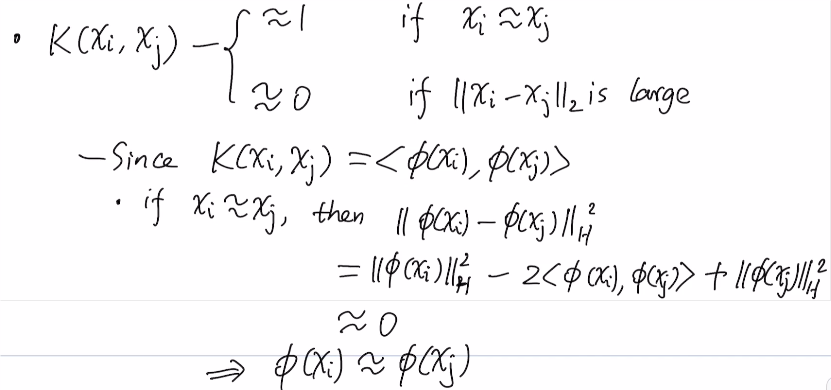 • K(xᵢ, xⱼ) – { ≈ 1 if xᵢ ≈ xⱼ
≈ 0 if ||xᵢ – xⱼ||₂ is large
– Since K(xᵢ, xⱼ) = <ϕ(xᵢ), ϕ(xⱼ)>
• if xᵢ ≈ xⱼ, then || ϕ(xᵢ) – ϕ(xⱼ)||²_H
= ||ϕ(xᵢ)||²_H – 2<ϕ(xᵢ), ϕ(xⱼ)> + ||ϕ(xⱼ)||²_H
≈ 0
⇒ ϕ(xᵢ) ≈ ϕ(xⱼ)